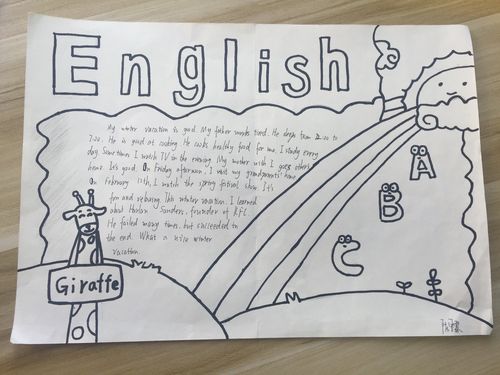 English
My winter vacation is good. My father works tired. He sleeps from 2:00 to
7:00. He is good at cooking. He cooks healthy food for me. I study every
day. Sometimes I watch TV in the evening. My mother with I goes
home. It's good. On Friday afternoon, I visit my grandparents' home
On February 10th, I watch the spring festival show. It's
fun and relaxing. This winter vacation, I learned
about Sanders, founder of KFC.
He failed many times, but succeeded in
the end. What a nice winter
vacation.
A
B
C
Giraffe